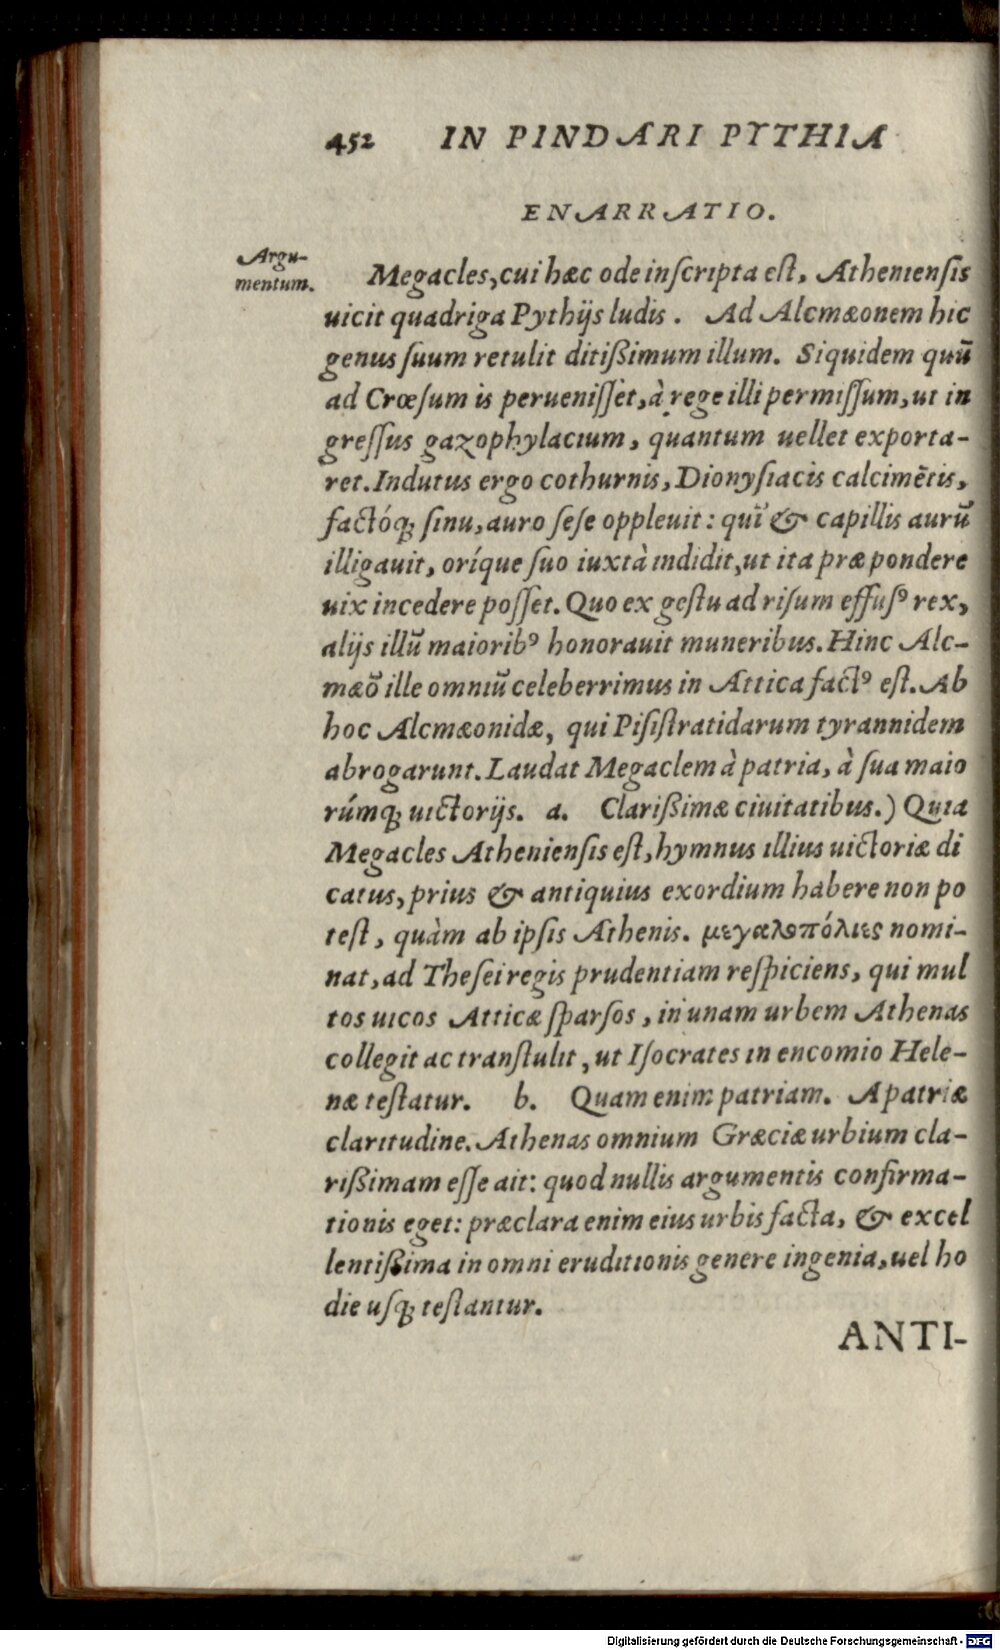 452 IN PINDARI PYTHIA
ENARRATIO.
Argu-
mentum.
Megacles, cui hæc ode inſcripta eſt, Athenienſis
uicit quadriga Pythijs ludis. Ad Alcmæonem hic
genus ſuum retulit ditißimum illum. Siquidem quū
ad Crœſum is perueniſſet, à rege illi permiſſum, ut in
greſſus gazophylacium, quantum uellet exporta-
ret. Indutus ergo cothurnis, Dionyſiacis calcimētis,
factóq; ſinu, auro ſeſe oppleuit: quī & capillis aurū
illigauit, oríque ſuo iuxtà indidit, ut ita præ pondere
uix incedere poſſet. Quo ex geſtu ad riſum effuſꝰ rex,
alijs illū maioribꝰ honorauit muneribus. Hinc Alc-
mæō ille omniū celeberrimus in Attica factꝰ eſt. Ab
hoc Alcmæonidæ, qui Piſiſtratidarum tyrannidem
abrogarunt. Laudat Megaclem à patria, à ſua maio
rúmq; uictorijs. a. Clarißimæ ciuitatibus.) Quia
Megacles Athenienſis eſt, hymnus illius uictoriæ di
catus, prius & antiquius exordium habere non po
teſt, quàm ab ipſis Athenis. μεγαλοπόλιες nomi-
nat, ad Theſei regis prudentiam reſpiciens, qui mul
tos uicos Atticæ ſparſos, in unam urbem Athenas
collegit ac tranſtulit, ut Iſocrates in encomio Hele-
næ teſtatur. b. Quam enim patriam. A patriæ
claritudine. Athenas omnium Græciæ urbium cla-
rißimam eſſe ait: quod nullis argumentis confirma-
tionis eget: præclara enim eius urbis facta, & excel
lentißima in omni eruditionis genere ingenia, uel ho
die uſq; teſtantur.
ANTI-
Digitalisierung gefördert durch die Deutsche Forschungsgemeinschaft - DFG